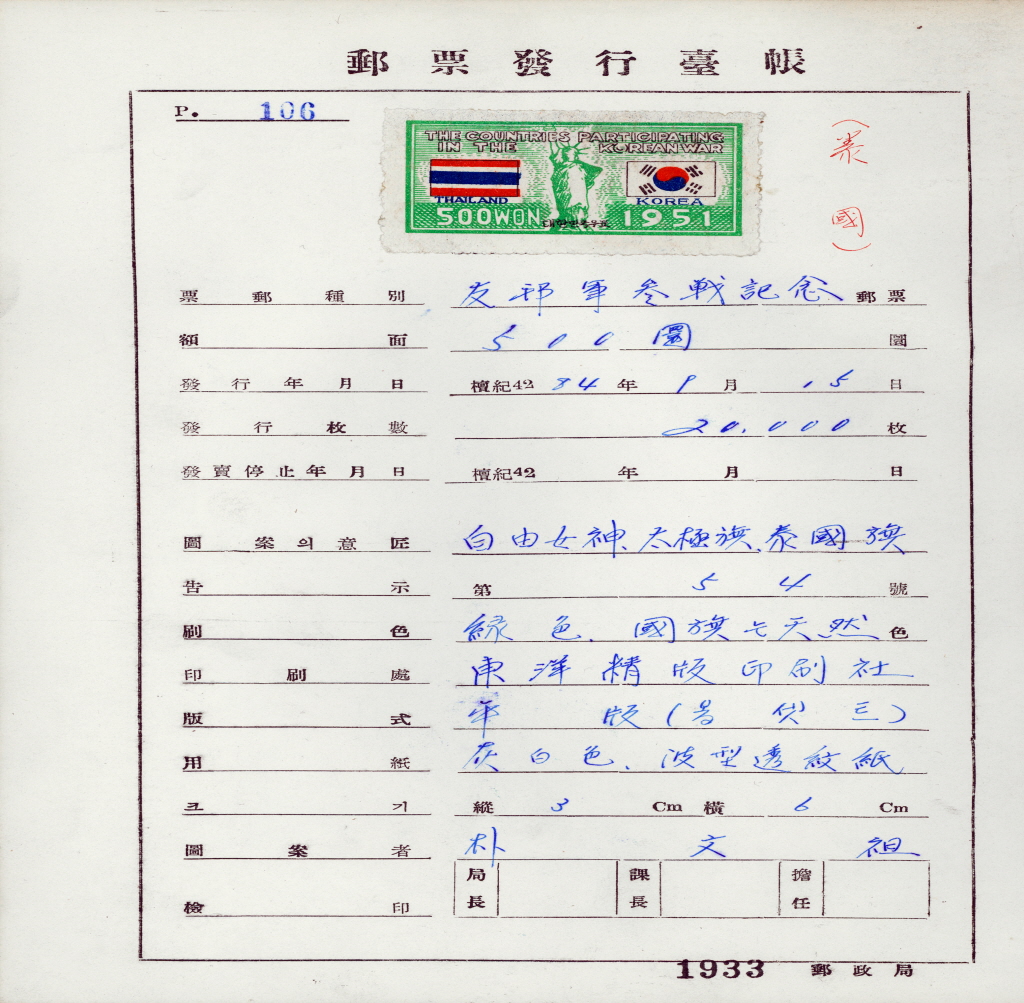 郵票發行臺帳
P. 106
THE COUNTRIES PARTICIPATING
IN THE KOREAN WAR
THAILAND KOREA
500WON 대한민국우표 1951
(泰國)
票郵種別 友邦軍參戰記念 郵票
額面 500圜 圜
發行年月日 檀紀4284年 9月 15日
發行枚數 20,000枚
發賣停止年月日 檀紀42 年 月 日
圖案의意匠 自由女神、太極旗、泰國旗
告示 第 54 號
刷色 緑色、國旗는天然色
印刷處 東洋精版印刷社
版式 平版 (
用紙 灰白色、波型透紋紙
크기 縱 3 Cm 橫 6 Cm
圖案者 朴文祖
檢印 局長 課長 擔任
1933 郵政局